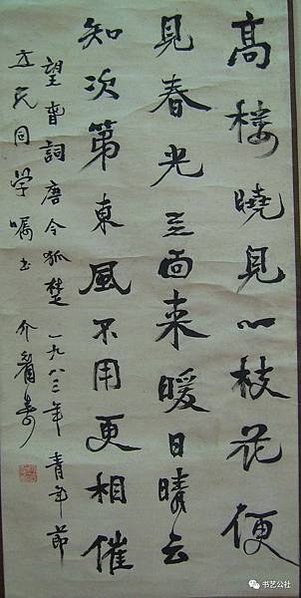 高楼曉見一枝花便
見春光面来暖日晴云
知次第東風不用更相催
望春詞唐令狐楚 一九八三年青年節
民同学嘱书 介眉
书艺公社